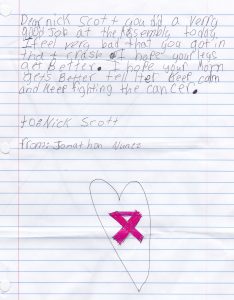 Dear nick Scott you did a verry
good job at the assembly today.
I feel very bad that you got in
that crash. I hope your legs
get Better. I hope your Mom
gets Better tell Her Keef calm
and Keep fighting the cancer.
to: Nick Scott
from: Jonathon Nuntz